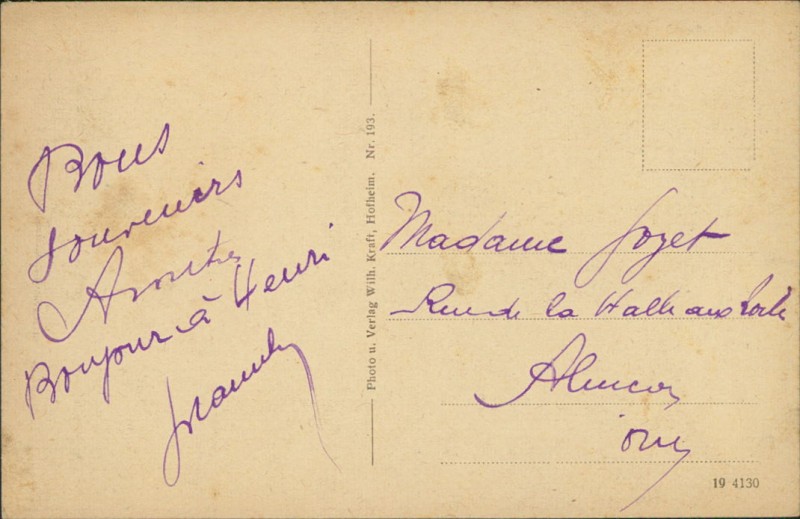 Bons
souvenirs
Bonjour à Henri
Photo u. Verlag Wilh. Kraft, Hofheim. Nr. 193.
Madame Gozet
Rue de la Halle aux Toiles
Alençon
Orne
19 4130